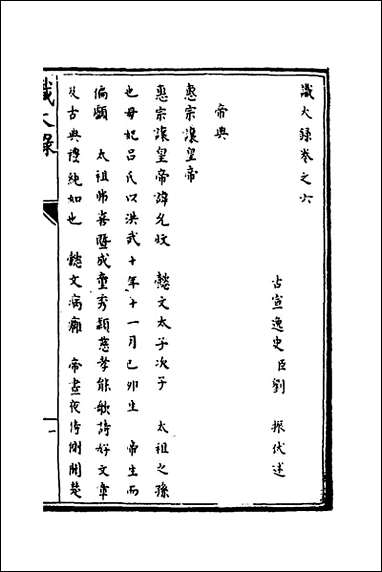 識大錄卷之六
古宣逸史臣劉 振伏述
帝典
惠宗讓皇帝
惠宗讓皇帝諱允炆 懿文太子次子 太祖之孫
也母妃呂氏以洪武十年十一月己卯生 帝生而
偏顱 太祖弗喜暨成童秀穎慈孝能歌詩好文章
及古典禮純如也 懿文病癰 帝晝夜侍側開楚
識大錄
一